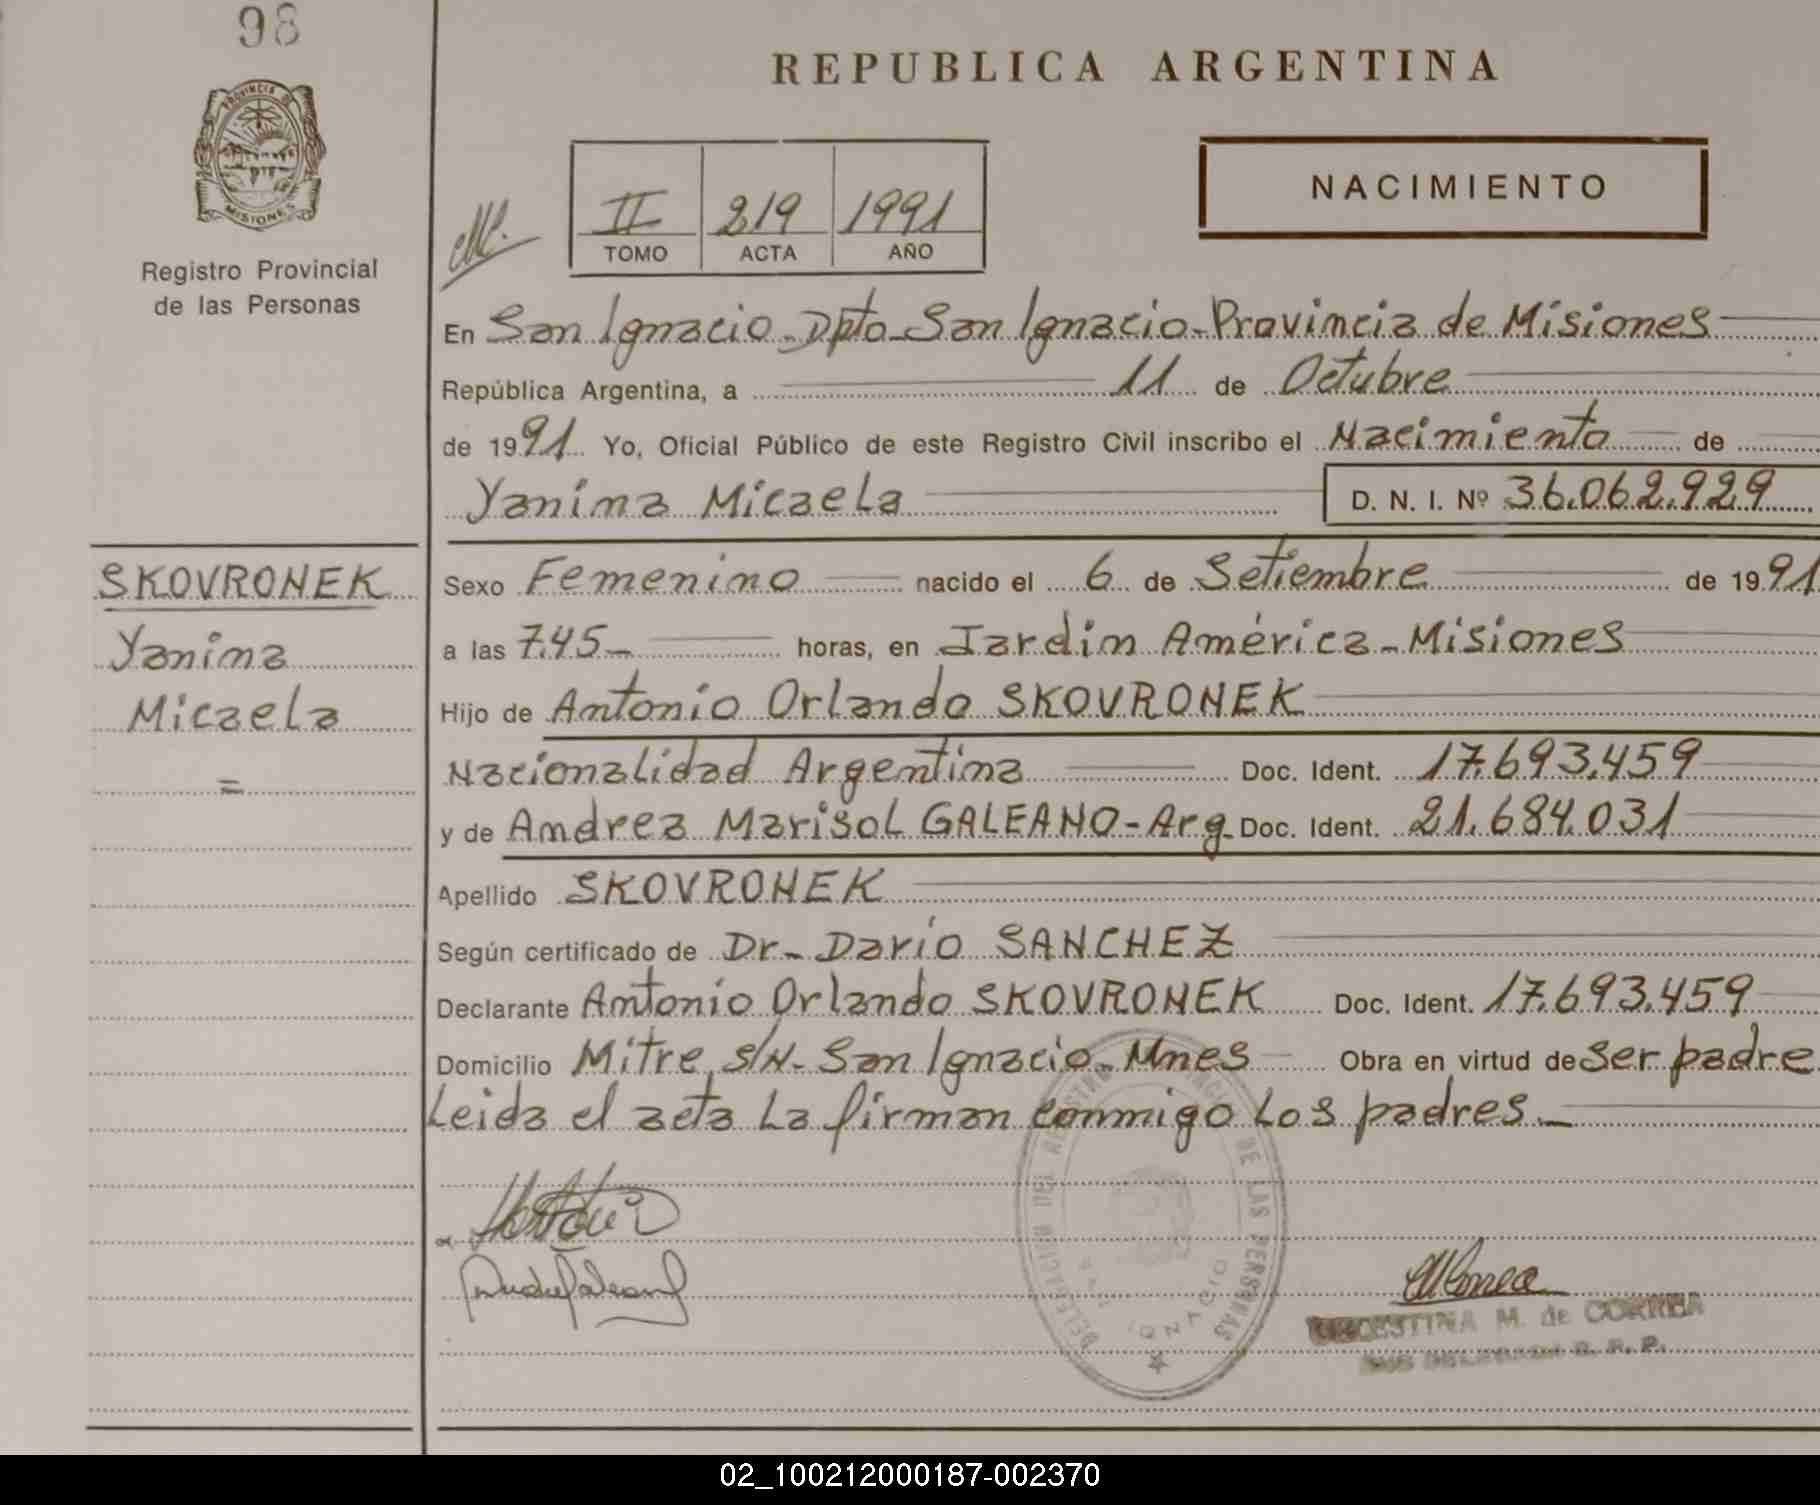 98
PROVINCIA DE
MISIONES
Registro Provincial
de las Personas
REPUBLICA ARGENTINA
II 219 1991
TOMO ACTA AÑO
NACIMIENTO
En San Ignacio-Dpto-San Ignacio-Provincia de Misiones
República Argentina, a 11 de Octubre
de 1991 Yo, Oficial Público de este Registro Civil inscribo el Nacimiento de
Yanina Micaela D. N. I. Nº 36.062.929
SKOVRONEK
Yanina
Micaela
=
Sexo Femenino nacido el 6 de Setiembre de 1991
a las 7.45- horas, en Jardín América-Misiones
Hijo de Antonio Orlando SKOVRONEK
Nacionalidad Argentina Doc. Ident. 17.693.459
y de Andrea Marisol GALEANO-Arg. Doc. Ident. 21.684.031
Apellido SKOVRONEK
Según certificado de Dr- Darío SANCHEZ
Declarante Antonio Orlando SKOVRONEK Doc. Ident. 17.693.459
Domicilio Mitre S/N- San Ignacio- Mnes Obra en virtud de ser padre
Leida el acta La firman conmigo Los padres.-
DELEGACION DEL REGISTRO PROVINCIAL DE LAS PERSONAS
IGNACIO
M. de CORREA
02_100212000187-002370